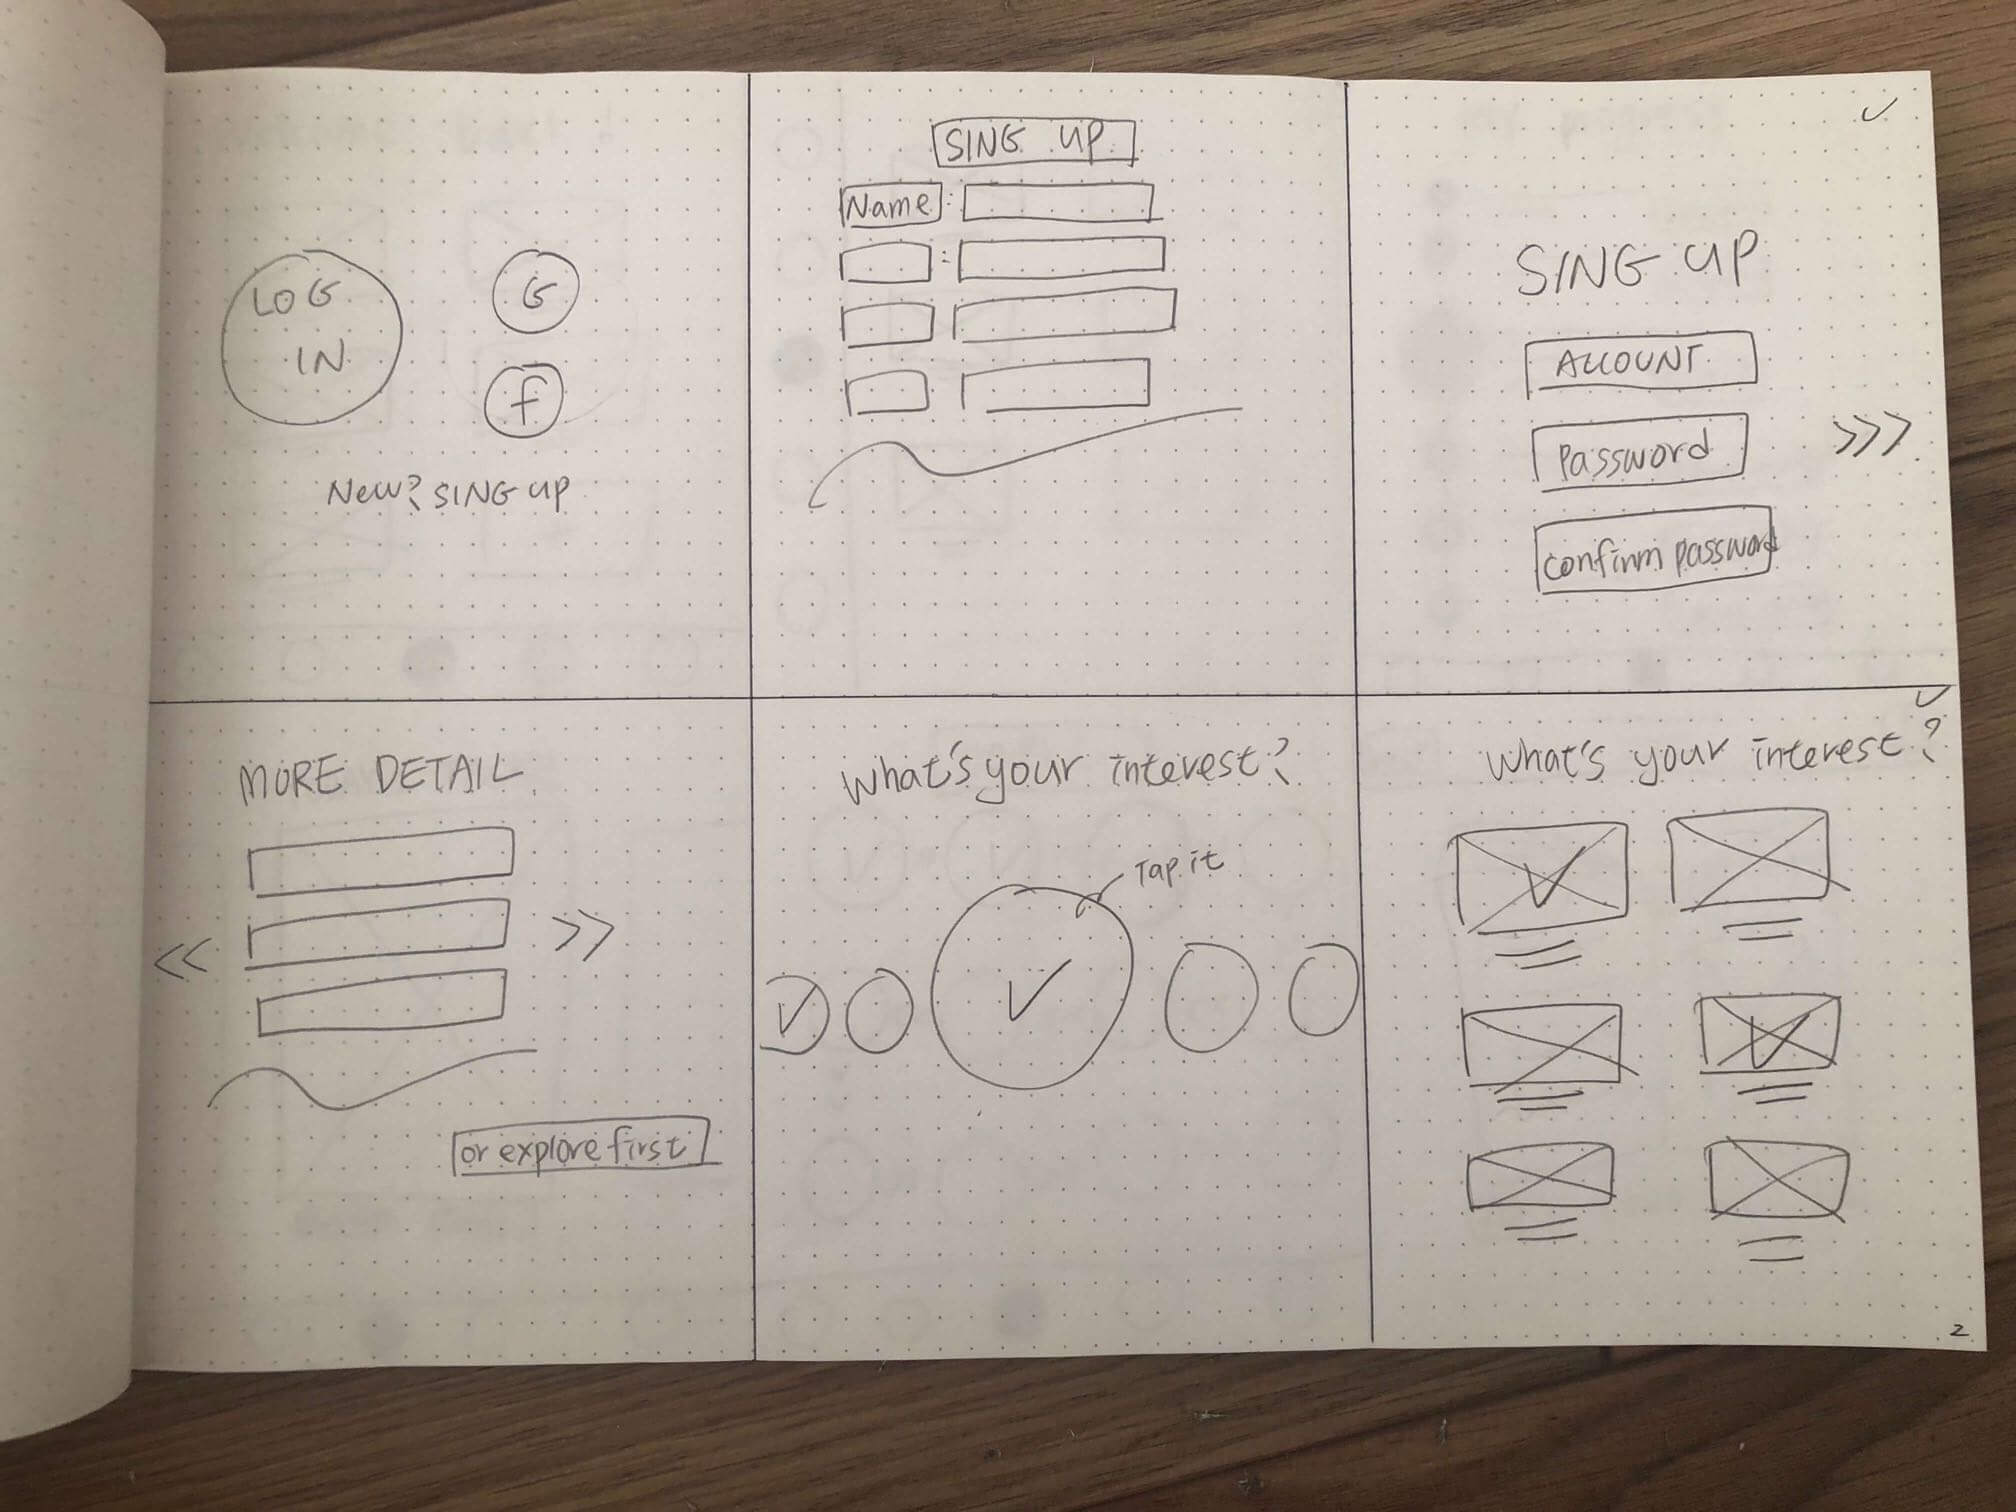 LOG
IN
G
f
New? SING UP
SING UP
Name:
SING UP
ACCOUNT
Password
Confirm password
>>>
MORE DETAIL
<< >>
or explore first
What's your interest?
Tap it
What's your interest?
2